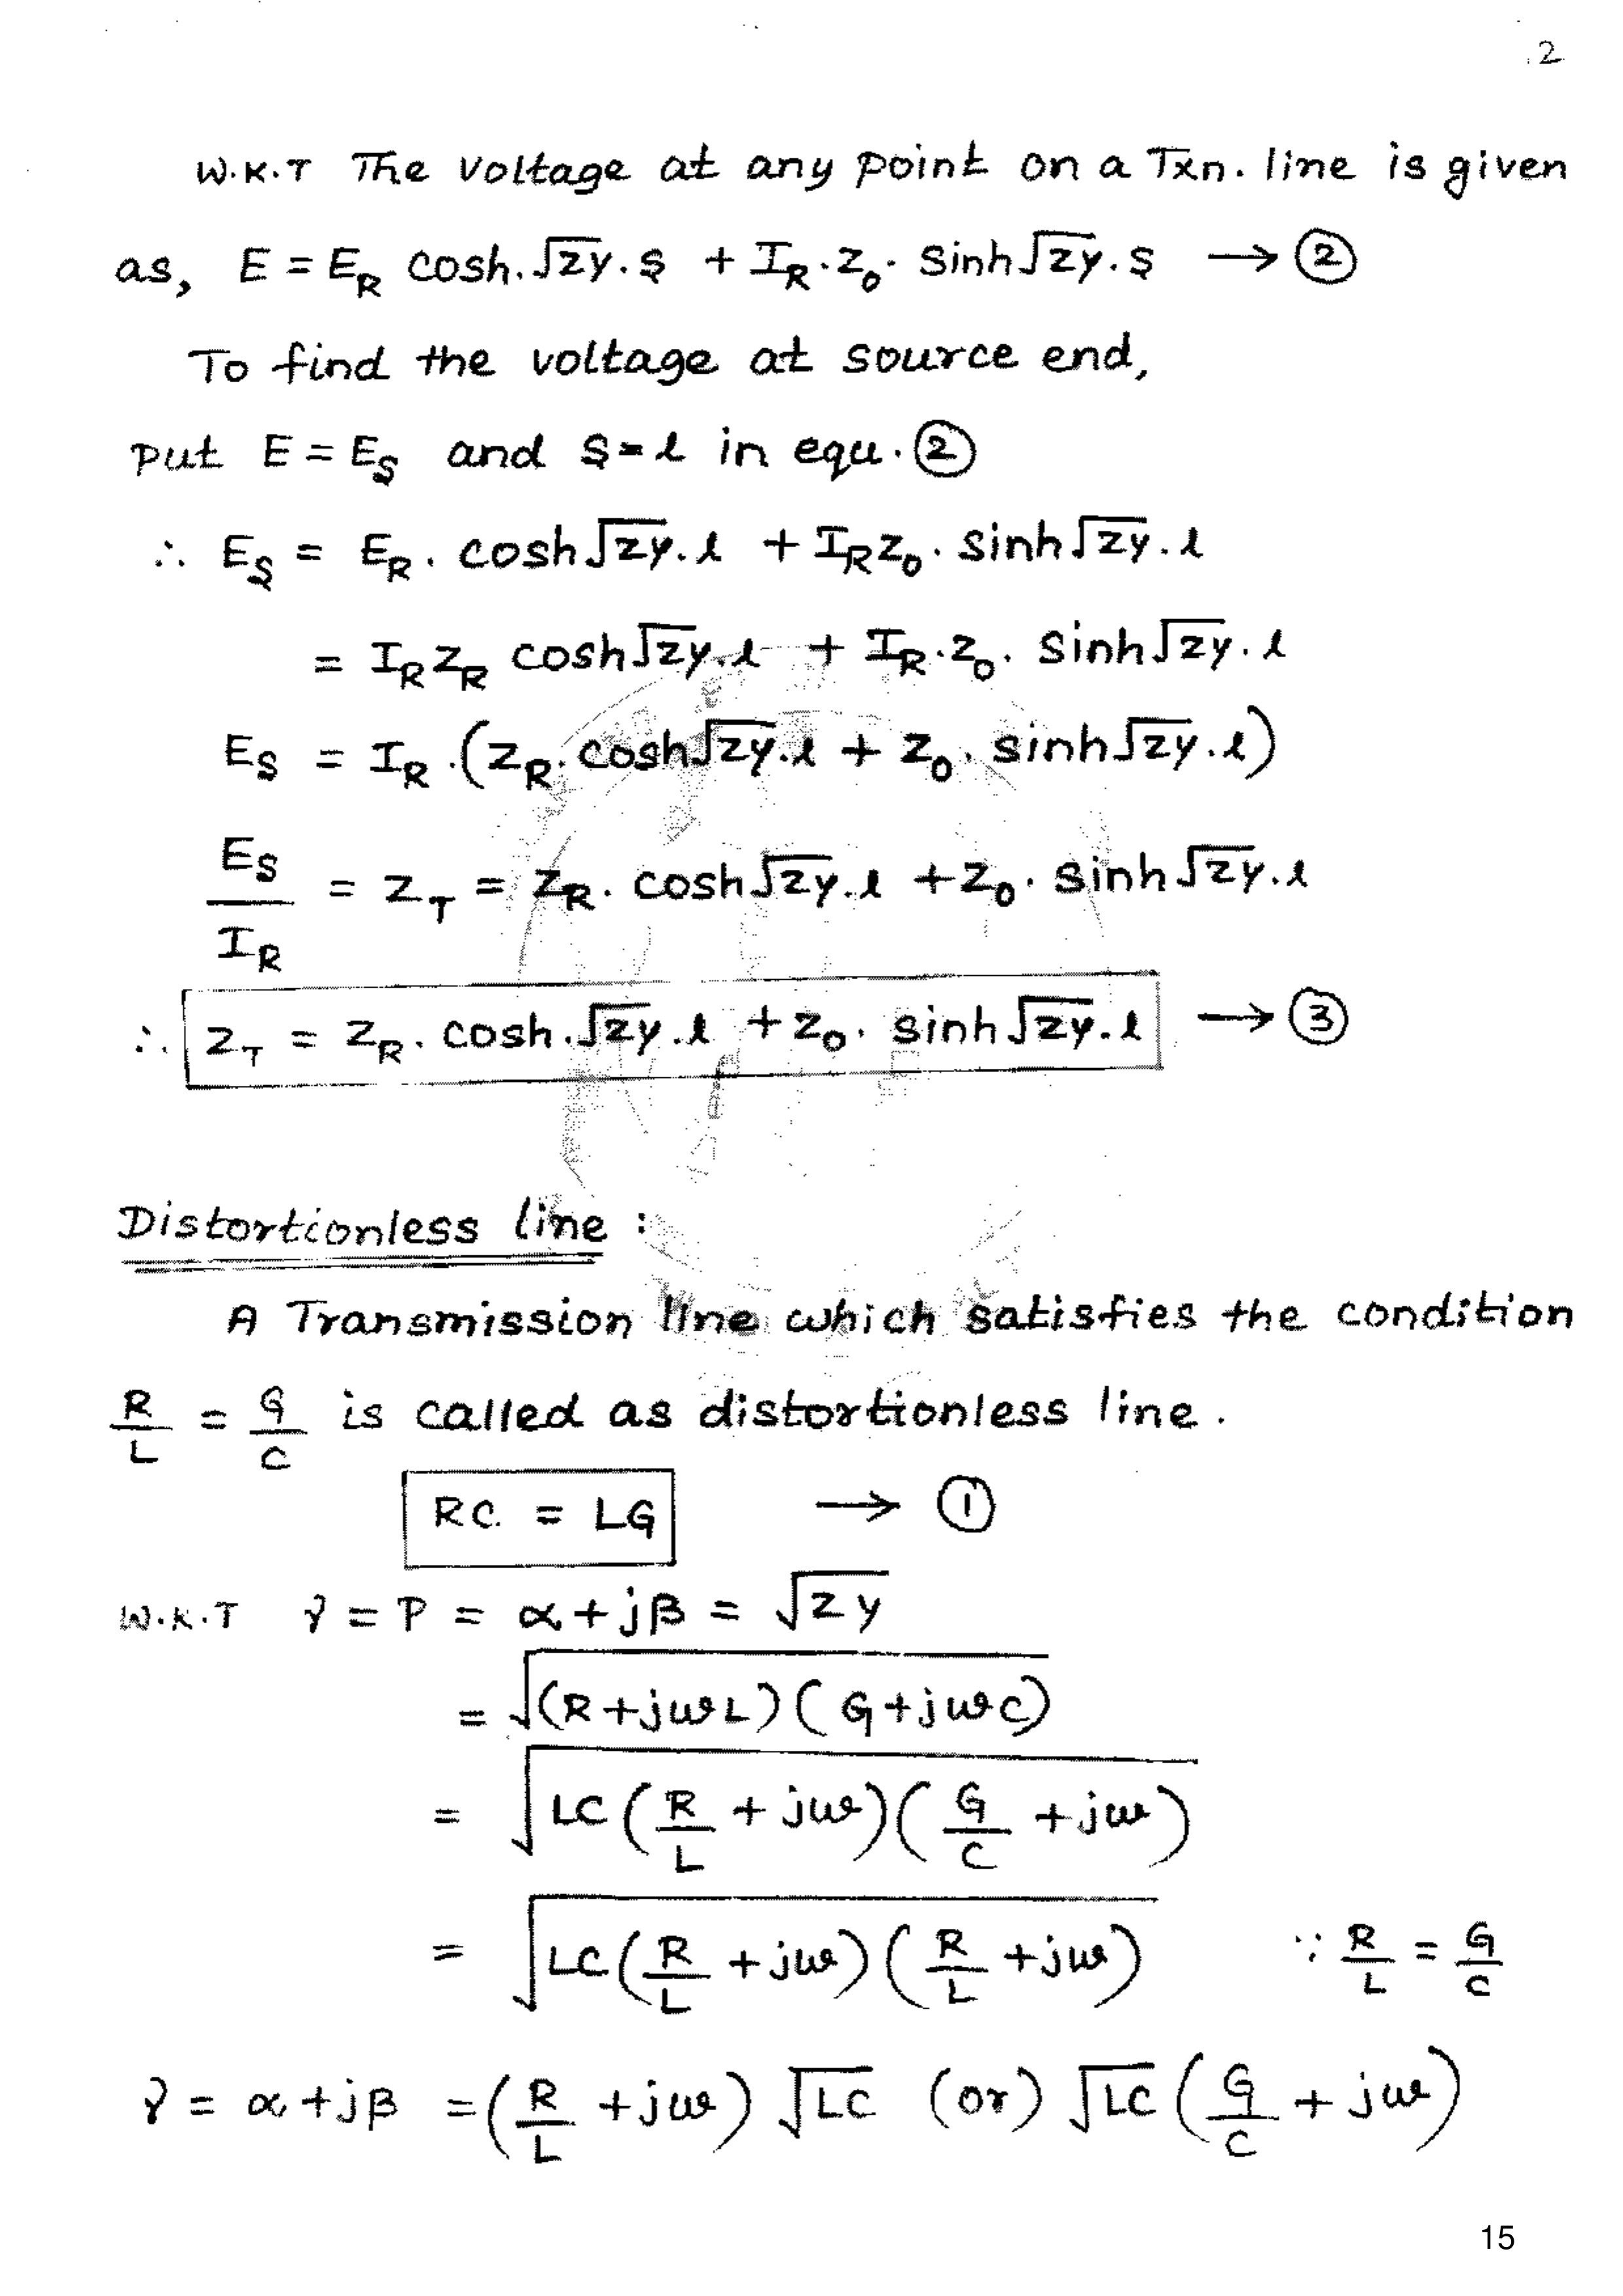 2
W.K.T The voltage at any point on a Txn. line is given
as, E = E_R cosh.√zy.s + I_R.z_o. sinh√zy.s → ②
To find the voltage at source end,
put E = E_S and s = l in equ. ②
∴ E_S = E_R. cosh√zy.l + I_R z_o. sinh√zy.l
= I_R z_R cosh√zy.l + I_R.z_o. sinh√zy.l
E_S = I_R.(z_R. cosh√zy.l + z_o. sinh√zy.l)
E_S/I_R = z_T = z_R. cosh√zy.l + z_o. sinh√zy.l
∴ z_T = z_R. cosh.√zy.l + z_o. sinh√zy.l → ③
Distortionless line :
A Transmission line which satisfies the condition
R/L = G/C is called as distortionless line.
RC = LG → ①
W.K.T γ = P = α + jβ = √zy
= √(R + jωL)(G + jωC)
= √LC(R/L + jω)(G/C + jω)
= √LC(R/L + jω)(R/L + jω) ∵ R/L = G/C
γ = α + jβ = (R/L + jω)√LC (or) √LC(G/C + jω)
15